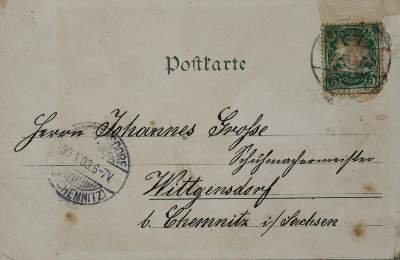 Postkarte
Herrn Johannes Große
Schuhmachermeister
Wittgensdorf
b. Chemnitz i/Sachsen
30.1.03.6-7V
(CHEMNITZ)
5 5